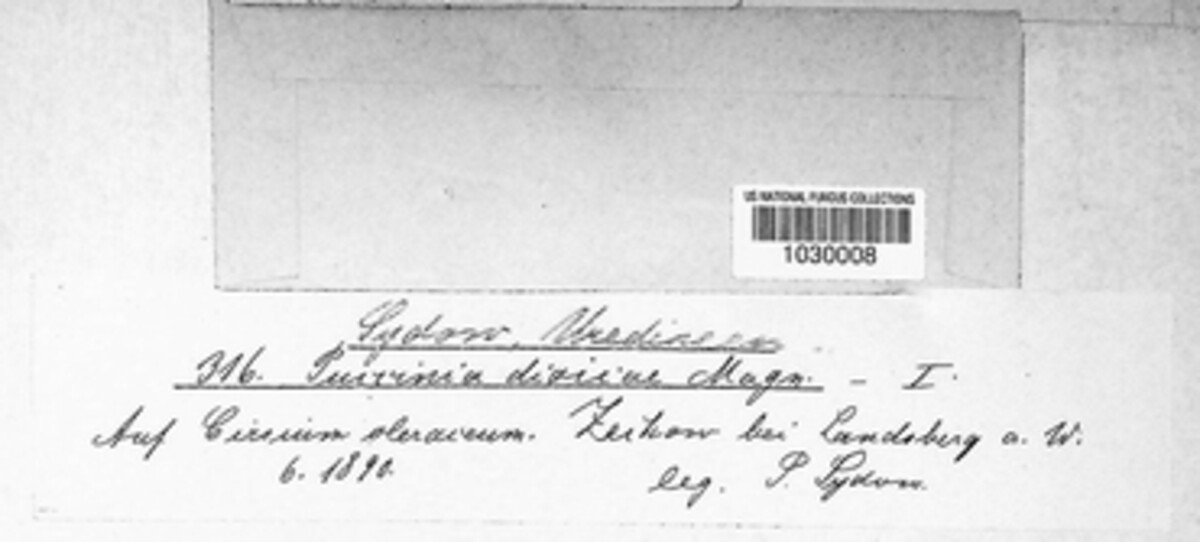 US NATIONAL FUNGUS COLLECTIONS
1030008
Sydow, Uredineen
316. Puccinia dioicae Magn. – I.
Auf Cirsium oleraceum. Zechow bei Landsberg a. W.
6. 1890. leg. P. Sydow.